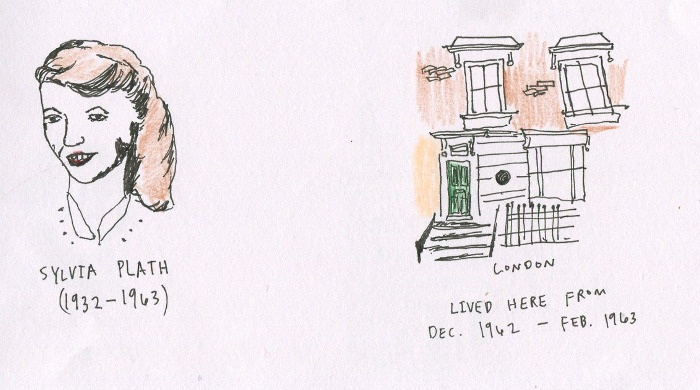 SYLVIA PLATH
(1932-1963)
LONDON
LIVED HERE FROM
DEC. 1962 - FEB. 1963